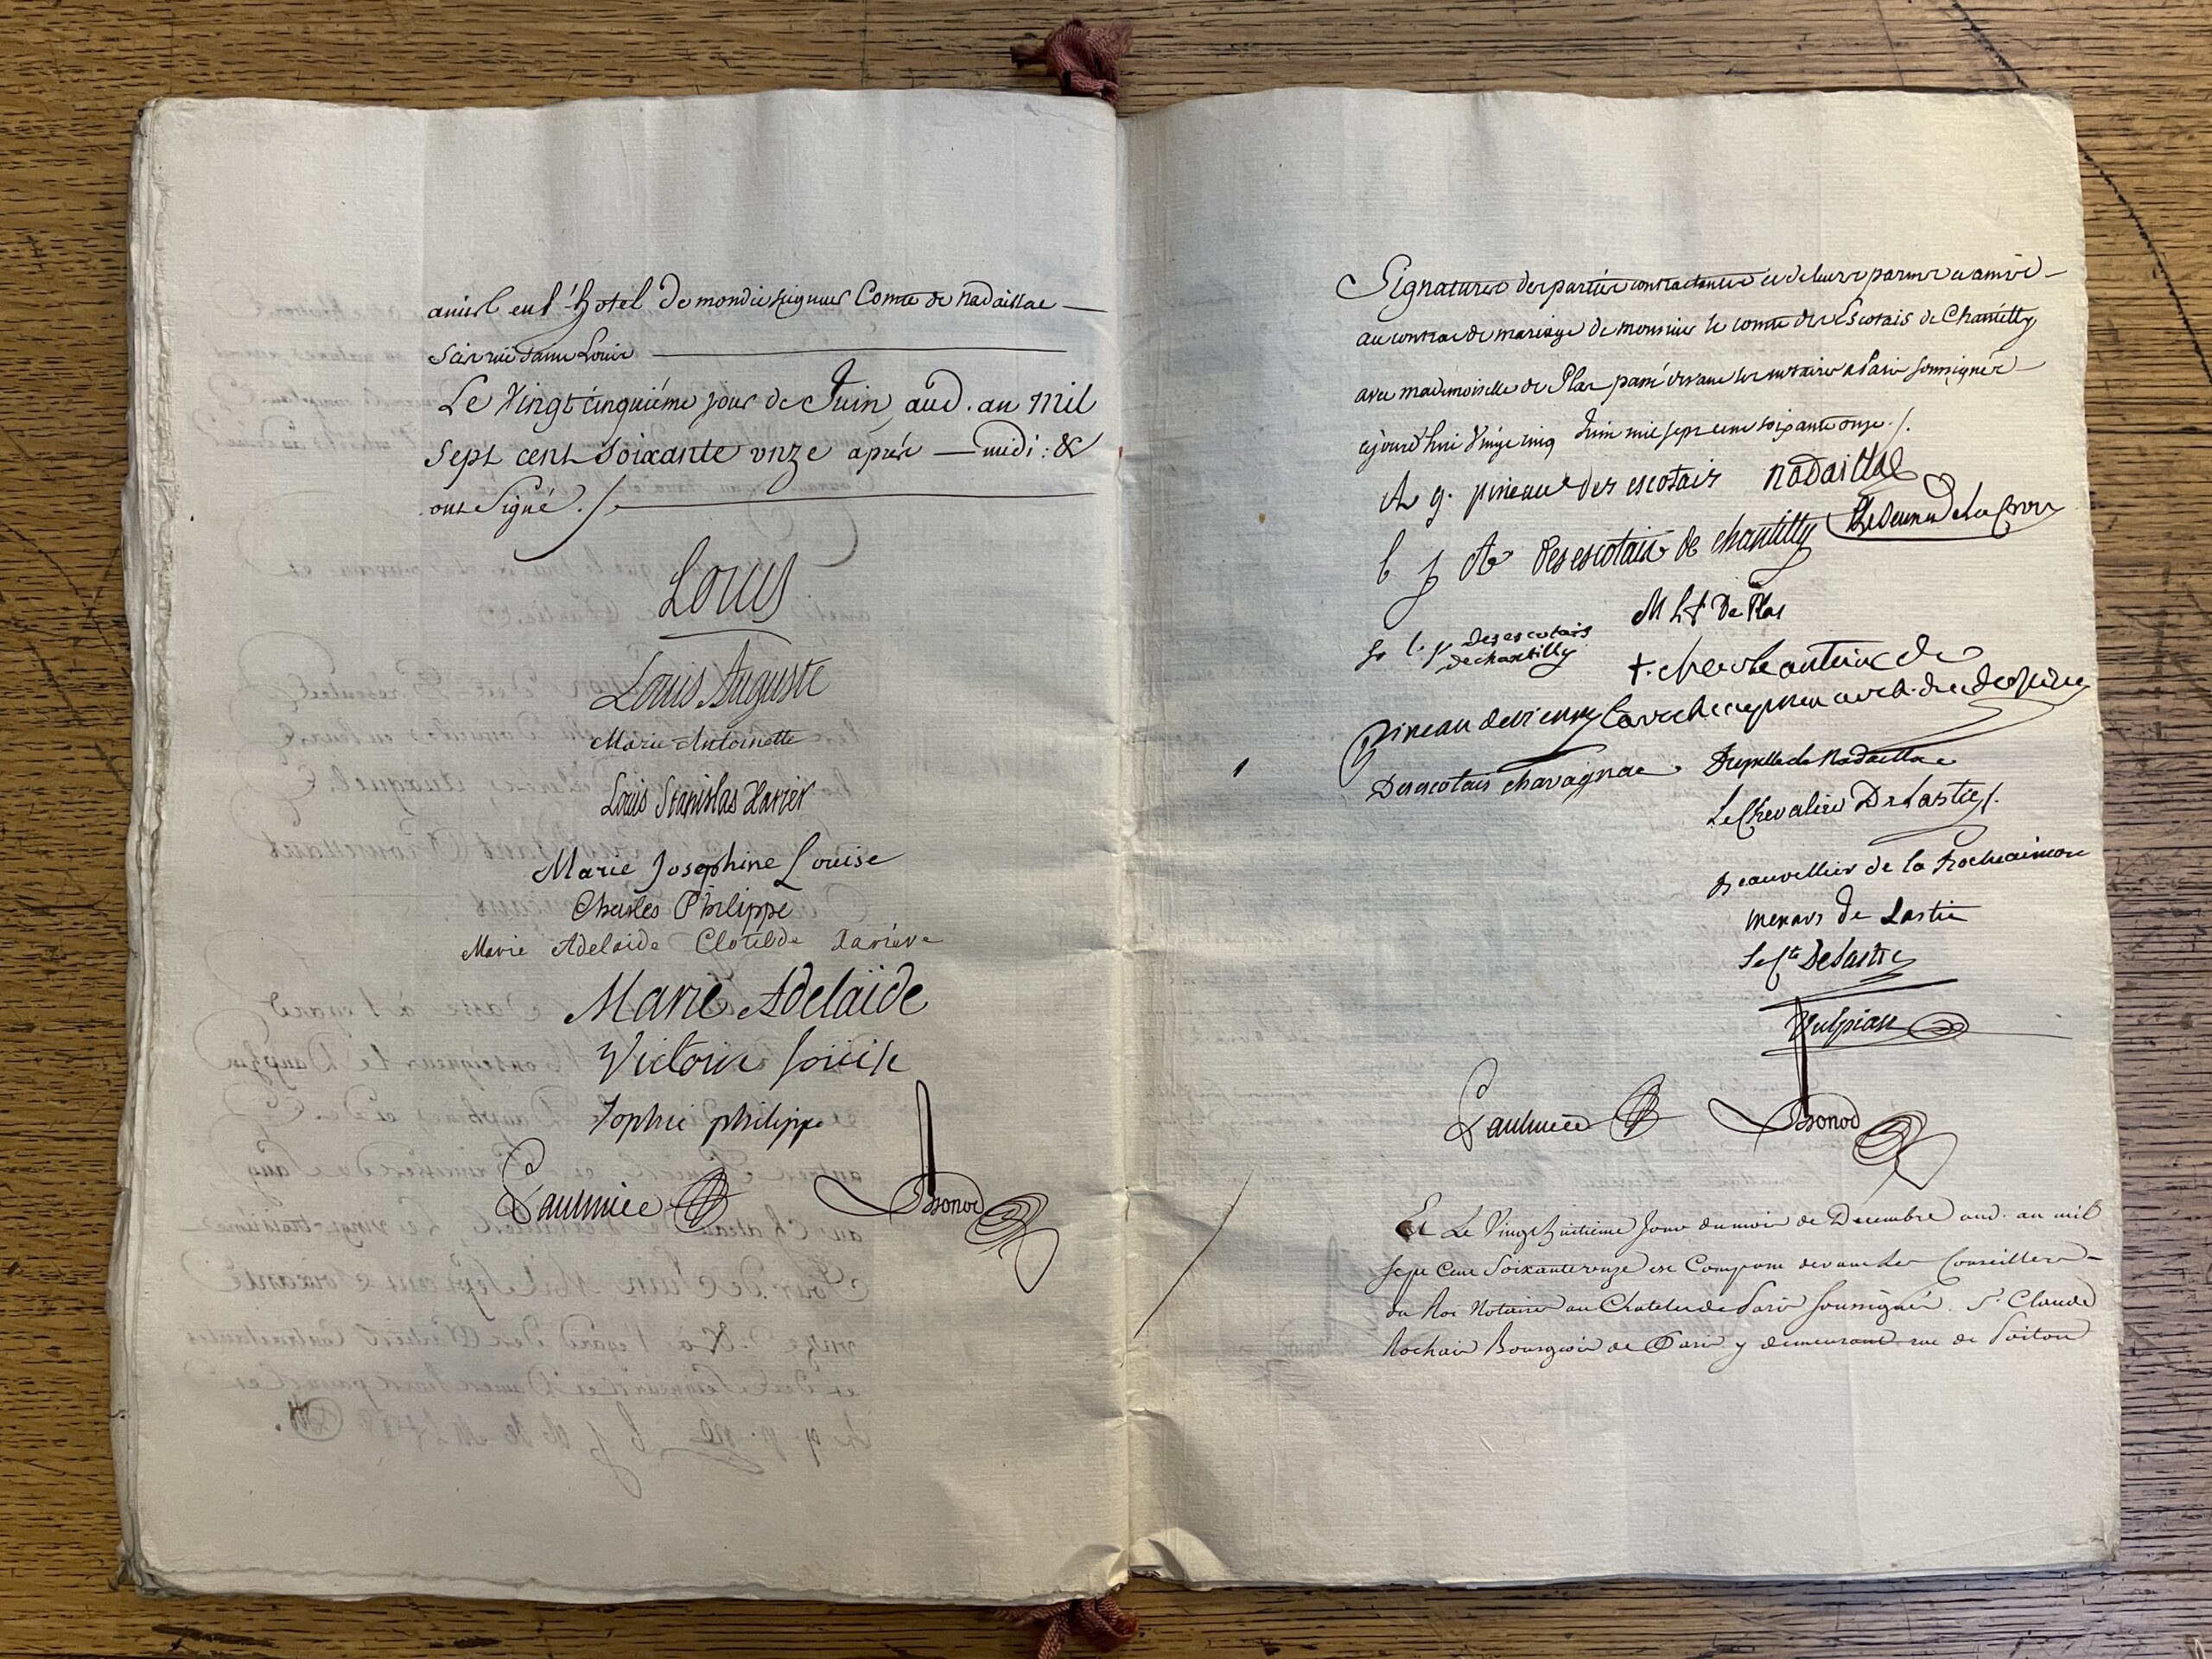 amis en l'hotel de mondit seigneur Comte de Nadaillac
Scis rue Saint Louis
Le Vingt cinquiéme jour de Juin aud. an Mil
Sept cent Soixante onze aprés midi : &
ont Signé ./.
Louis
Louis Auguste
Marie Antoinette
Louis Stanislas Xavier
Marie Josephine Louise
Charles Philippe
Marie Adelaide Clotilde Xaviere
Marie Adelaïde
Victoire Louise
Sophie philippe
Paulmier
Bronod
Signatures des parties contractantes et de leurs parens et amis
au contrat de mariage de monsieur le comte des Escotais de Chantilly
avec mademoiselle de Plas passé devant les notaires a Paris soussignés
cejourd'hui Vingt cinq Juin mil sept cent soixante onze ./.
g. pineau des escotais Nadaillac
l j desescotais de chantilly
M De Plas
l. desescotais
dechantilly
+ de
pineau devienney
Desescotais chavagnac
de Nadaillac
Le Chevalier De Lastic ./.
Beauvillier de la Rocheaimon
menars de Lastic
Le Cte De Lastic
Vulpian
Paulmier
Bronod
Et Le Vingt huitieme Jour du mois de Decembre aud. an mil
sept Cent Soixante onze est Comparu devant les Conseillers
du Roi Notaires au Chatelet de Paris soussignés. Sr. Claude
Rochais Bourgeois de Paris y demeurant rue de Poitou